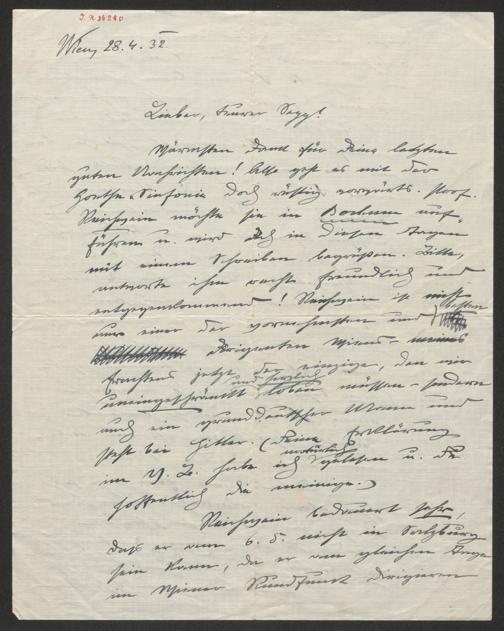 J.N. 14240
Wien, 28.4.32.
Lieber, teurer Sepp!
Wärmsten Dank für Deine letzten
guten Nachrichten! Also geht es mit der
Goethe-Sinfonie doch rüstig vorwärts. Prof.
Reichwein möchte sie in Bochum auf-
führen u. wird Dich in diesen Tagen
mit einem Schreiben begrüßen. Bitte,
antworte ihm recht freundlich und
entgegenkommend! Reichwein ist nicht
nur einer der vornehmsten und besten
Dirigenten Wiens –
Erachtens jetzt der einzige, den wir
uneingeschränkt und herzlich loben müssen – sondern
auch ein grunddeutscher Mann und
steht bei Hitler. (Deine Erklärung
im V. B. habe ich natürlich gelesen u. Du
hoffentlich die meinige.)
Reichwein bedauert sehr,
daß er am 6. 5. nicht in Salzburg
sein kann, da er am gleichen Tage
im Wiener Rundfunk dirigieren